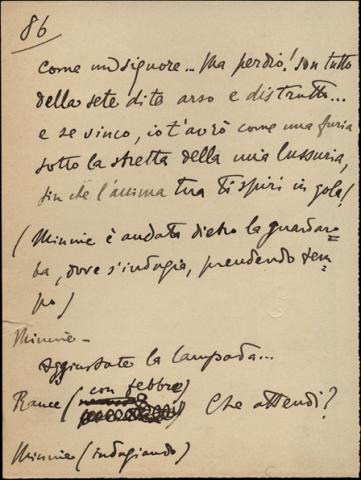 86
come un signore... Ma perdio! son tutto
della sete di te arso e distrutto...
e se vinco, io t'avrò come una furia
sotto la stretta della mia lussuria,
sin che l'anima tua ti spiri in gola!
(Minnie è andata dietro la guardaro=
ba, dove s'indugia, prendendo tem=
po)
Minnie -
Aggiustate la lampada...
con febbre)
Rance ( Che attendi?
Minnie (indugiando)